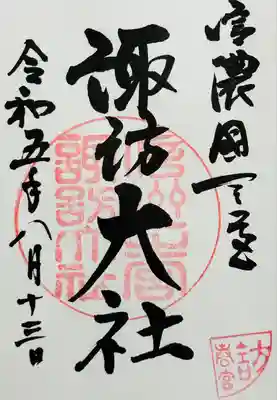 信濃國一之宮
諏訪大社
令和五年八月十三日
諏訪大社
春宮